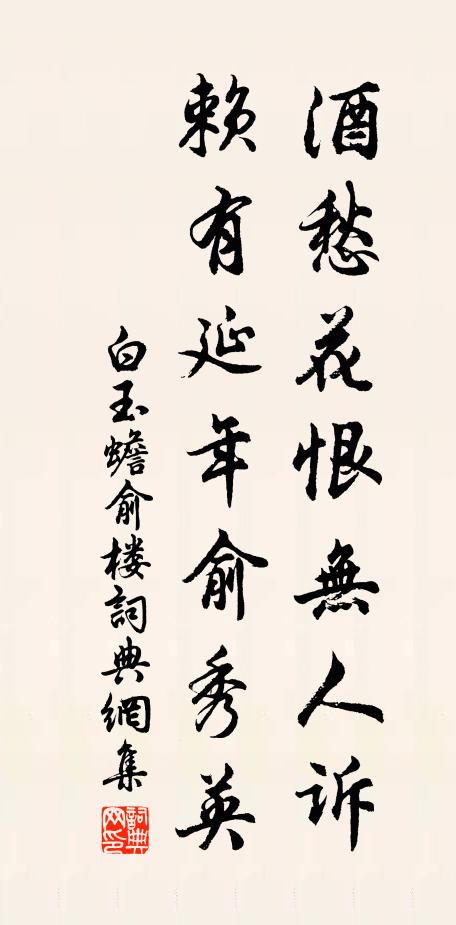 酒愁花恨無人訴
賴有延年俞秀英
白玉蟾俞楼詞典網集
詞典网印